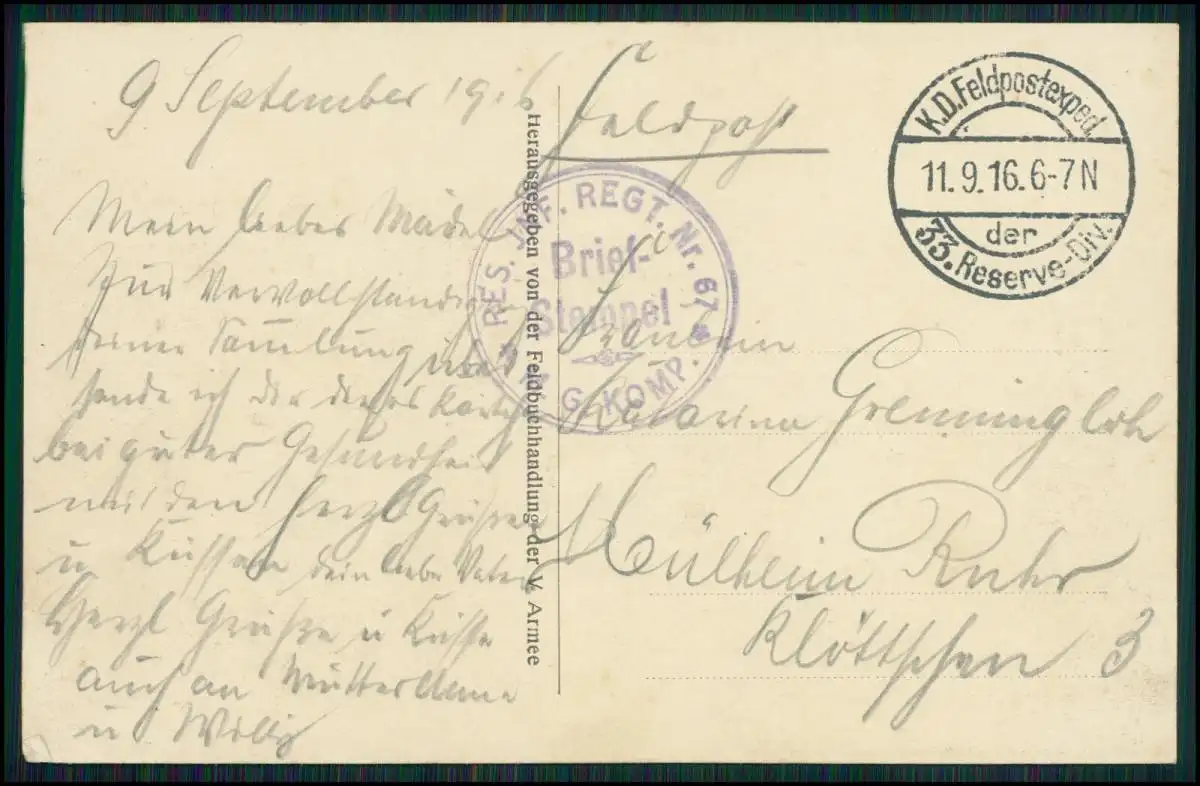 9 September 1916
Mein liebes Mädel
Zur Vervollständi
deiner Sammlung
sende ich dir dieses Kärtchen
bei guter Gesundheit
mit den herzl Grüßen
u Küssen dein liebe Vater
Herzl Grüße u Küsse
auch an Mutter
u Willy
Herausgegeben von der Feldbuchhandlung der V. Armee
Feldpost
RES. INF. REGT. Nr. 67
Brief-
Stempel
M. G. KOMP.
K.D.Feldpostexped.
11.9.16.6-7N
der
33.Reserve-Div.
Fräulein
Katarina Grenningloh
Mülheim Ruhr
Klöttschen 3